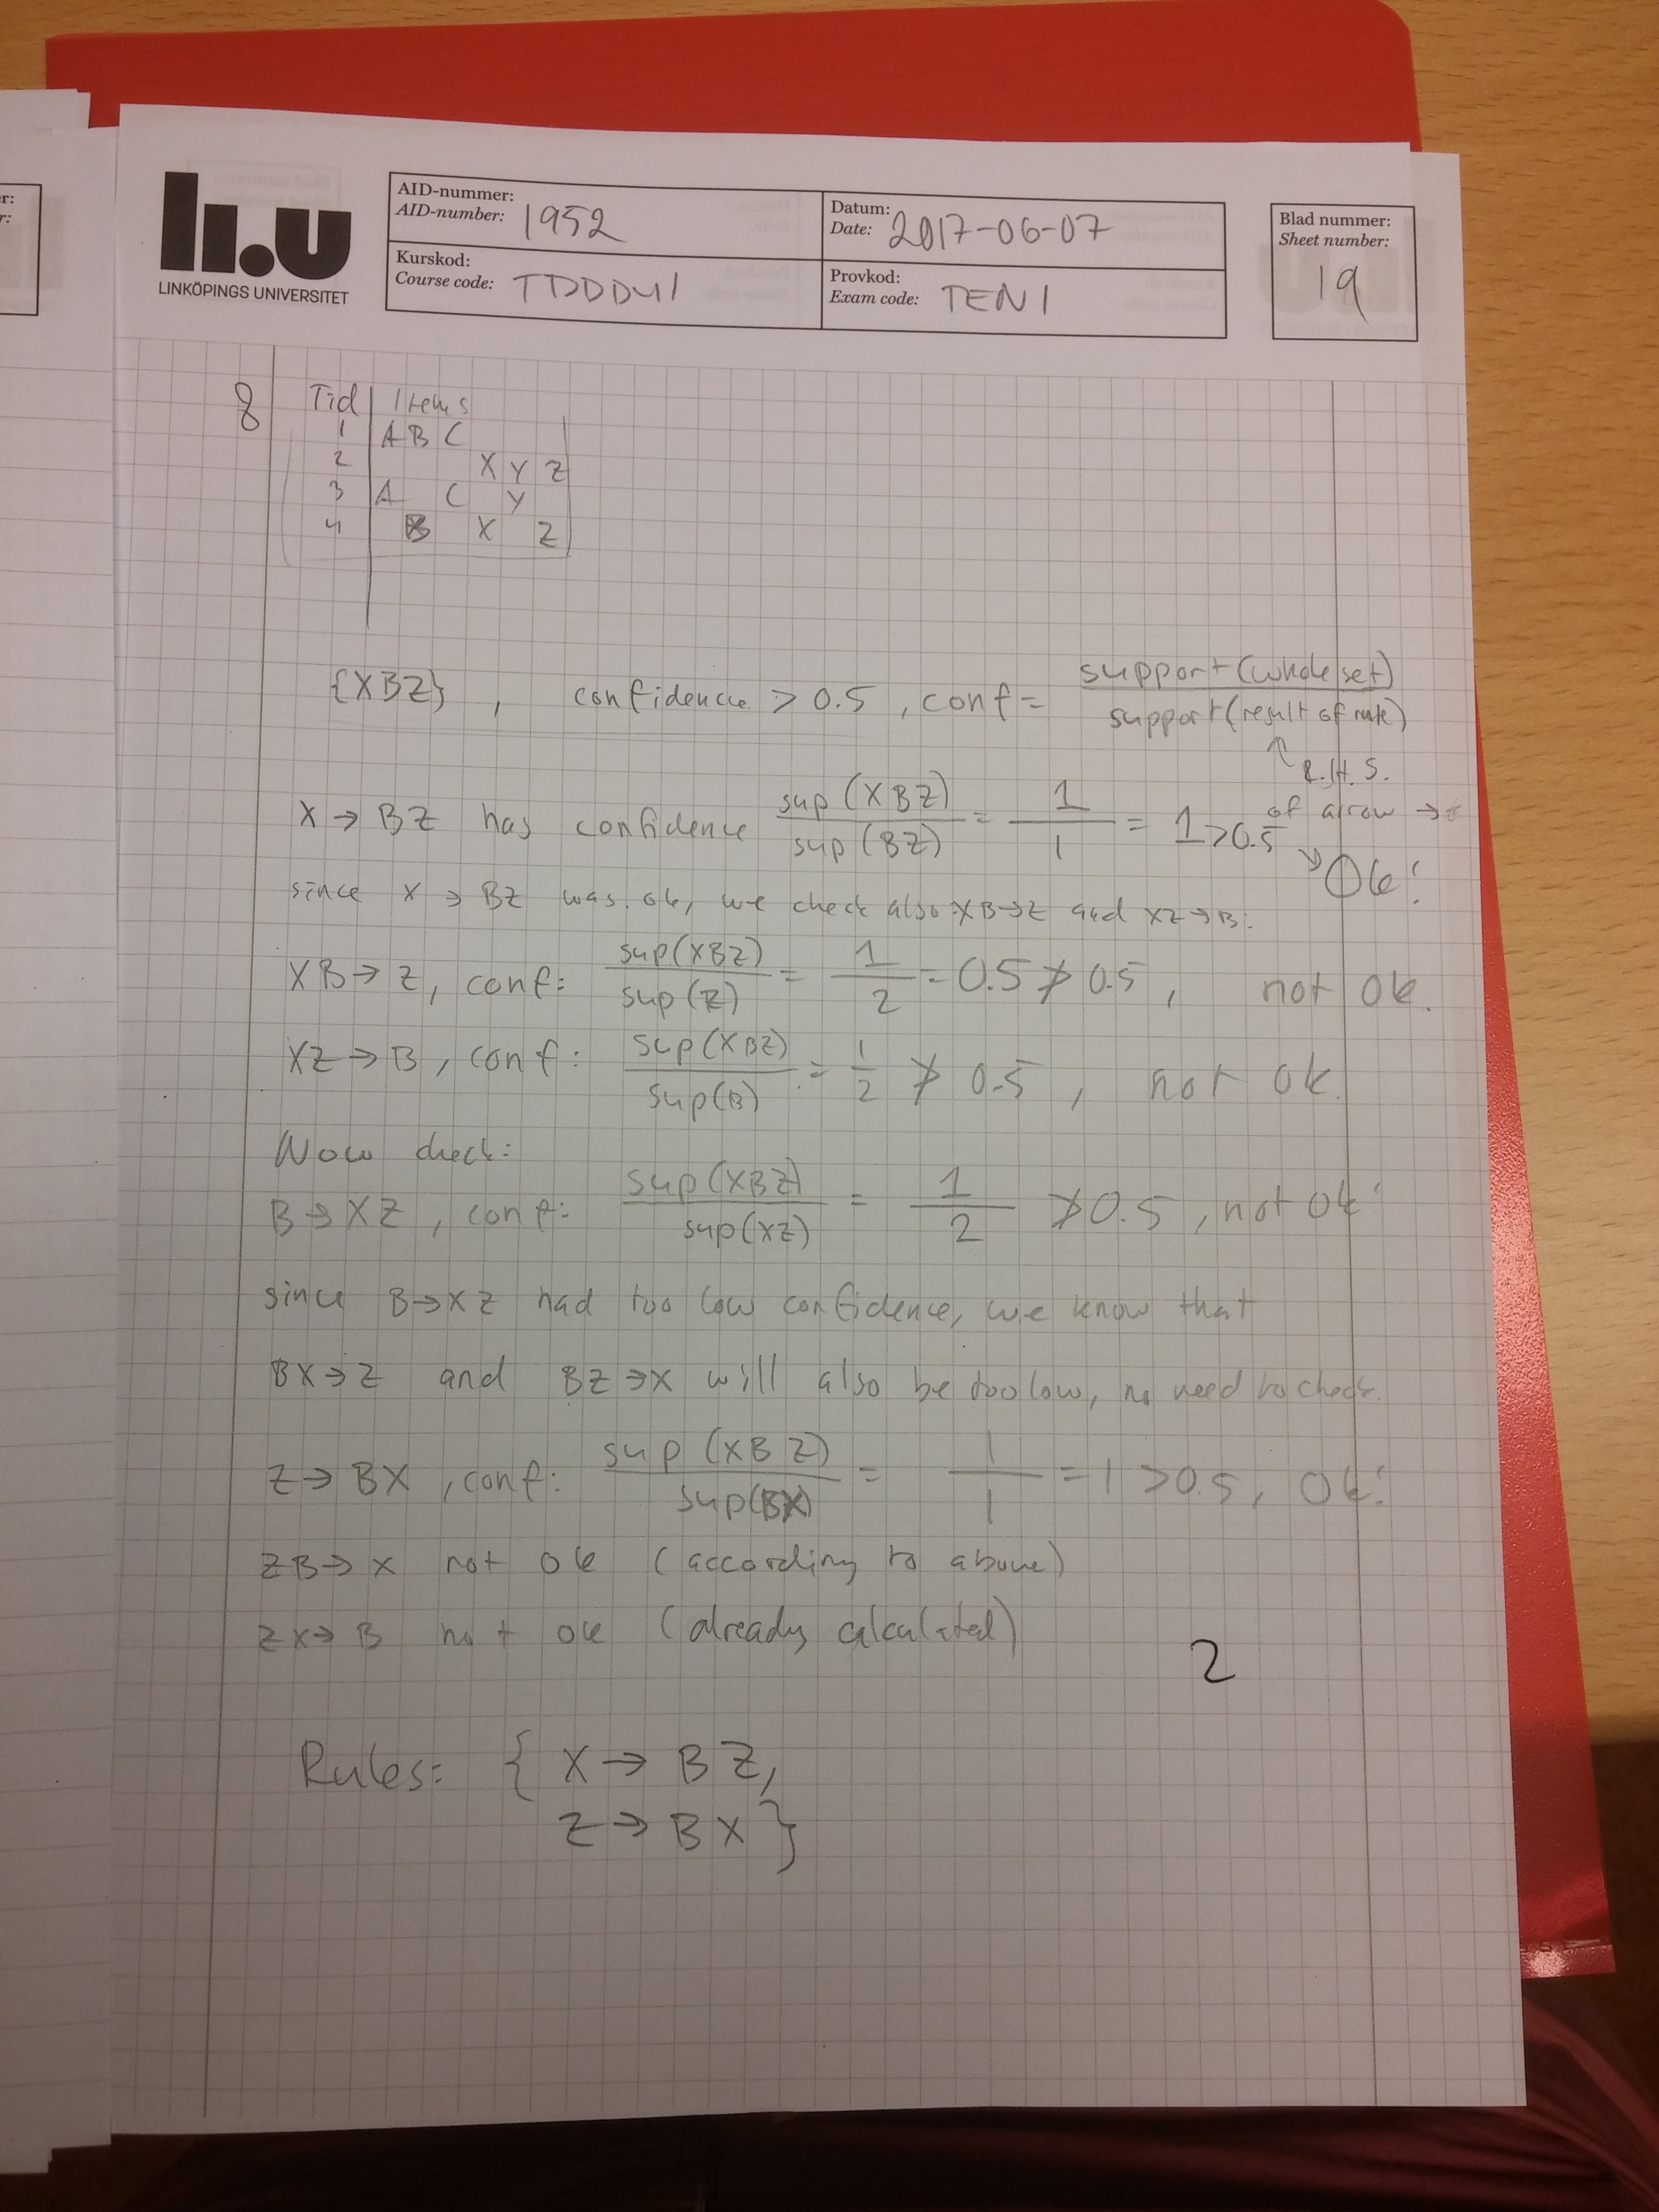 r:
r:
li.u
LINKÖPINGS UNIVERSITET
AID-nummer:
AID-number: 1952
Datum:
Date: 2017-06-07
Kurskod:
Course code: TDDD41
Provkod:
Exam code: TEN1
Blad nummer:
Sheet number:
19
8 Tid Items
1 A B C
2 X Y Z
3 A C Y
4 B X Z
{XBZ} , confidence > 0.5 , conf = support(whole set) / support(result of rule)
↑ R.H.S.
of arrow →
X → BZ has confidence sup(XBZ) / sup(BZ) = 1 / 1 = 1 > 0.5 → Ok!
since X → BZ was ok, we check also XB→Z and XZ→B:
XB → Z, conf: sup(XBZ) / sup(Z) = 1 / 2 = 0.5 ≯ 0.5 , not ok.
XZ → B , conf: sup(XBZ) / sup(B) = 1 / 2 ≯ 0.5 , not ok.
Now check:
B → XZ , conf: sup(XBZ) / sup(XZ) = 1 / 2 ≯ 0.5 , not ok!
since B→XZ had too low confidence, we know that
BX→Z and BZ→X will also be too low, no need to check.
Z → BX , conf: sup(XBZ) / sup(BX) = 1 / 1 = 1 > 0.5, Ok!
ZB→X not ok (according to above)
ZX→B not ok (already calculated)
2
Rules: { X → BZ,
Z → BX }